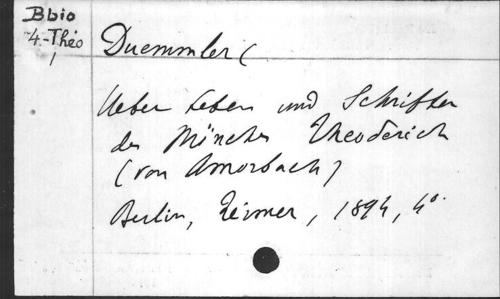 Bbio
4.-Théo
1
Duemmler (
Ueber Leben und Schriften
des Mönches Theoderich
(von Amorbach)
Berlin, Reimer, 1894, 4°.